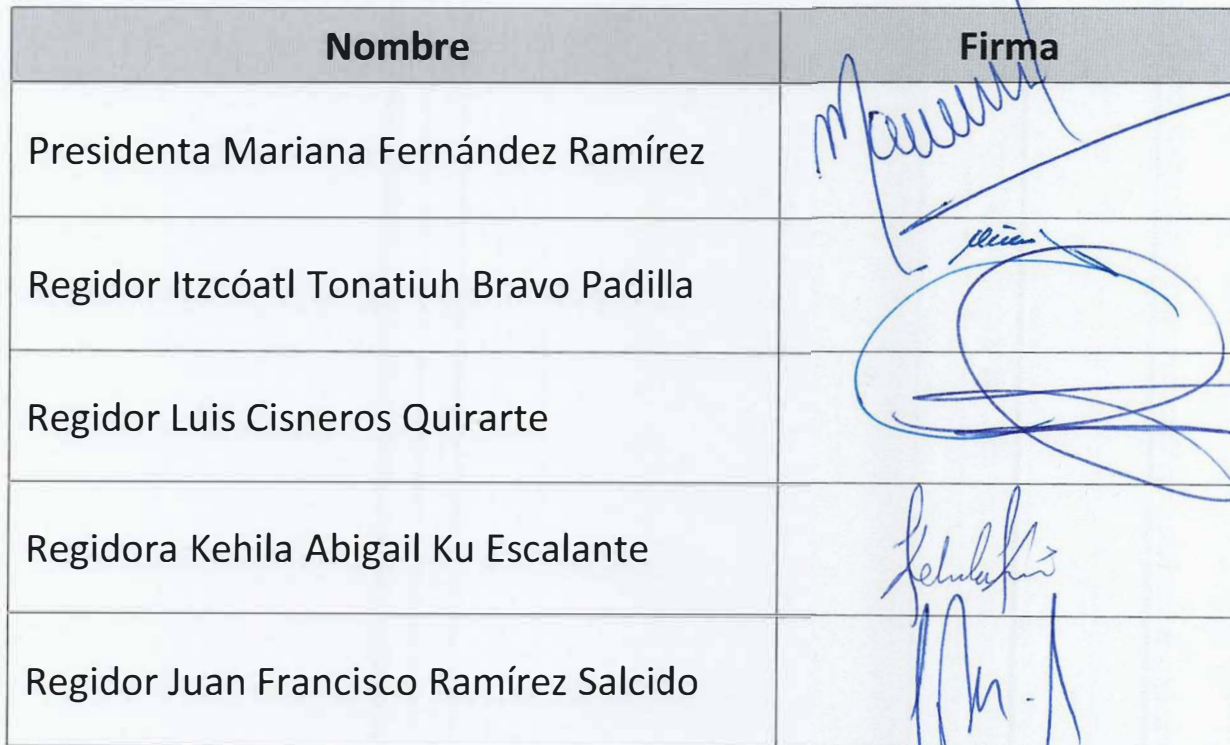 Nombre Firma
Presidenta Mariana Fernández Ramírez
Regidor Itzcóatl Tonatiuh Bravo Padilla
Regidor Luis Cisneros Quirarte
Regidora Kehila Abigail Ku Escalante
Regidor Juan Francisco Ramírez Salcido